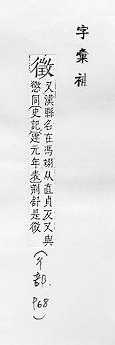 字彙補
徵 又漢縣名在馮翊从直貞反又與
懲同史記建元年表荆舒是徵
(彳部.)